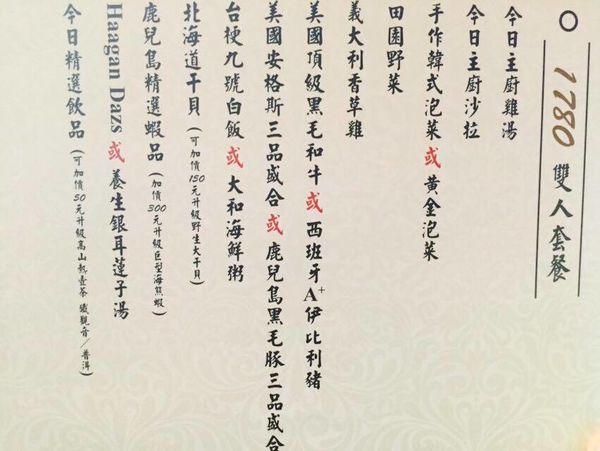 1780 雙人套餐
今日主廚雞湯
今日主廚沙拉
手作韓式泡菜或黃金泡菜
田園野菜
義大利香草雞
美國頂級黑毛和牛或西班牙A+伊比利豬
美國安格斯三品盛合或鹿兒島黑毛豚三品盛合
台梗九號白飯或大和海鮮粥
北海道干貝(可加價150元升級野生大干貝)
鹿兒島精選蝦品(加價300元升級巨型海熊蝦)
Haagan Dazs 或養生銀耳蓮子湯
今日精選飲品(可加價50元升級高山熱壺茶 鐵觀音/普洱)